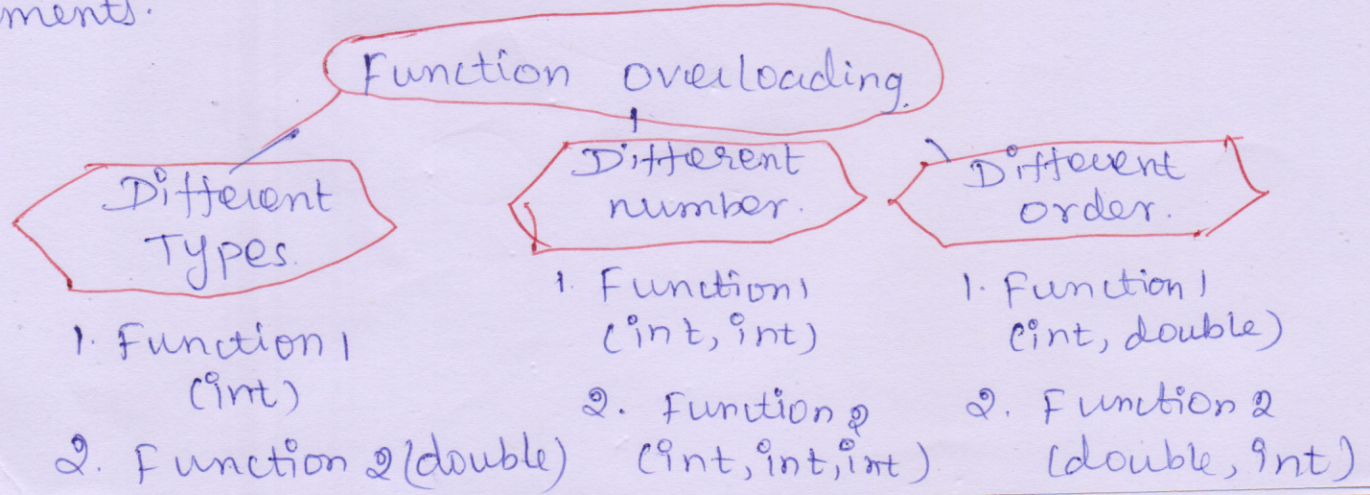 ments.
Function overloading.
Different
Types.
1. Function 1
(int)
2. Function 2 (double)
Different
number.
1. Function 1
(int, int)
2. Function 2
(int, int, int)
Different
order.
1. Function 1
(int, double)
2. Function 2
(double, int)